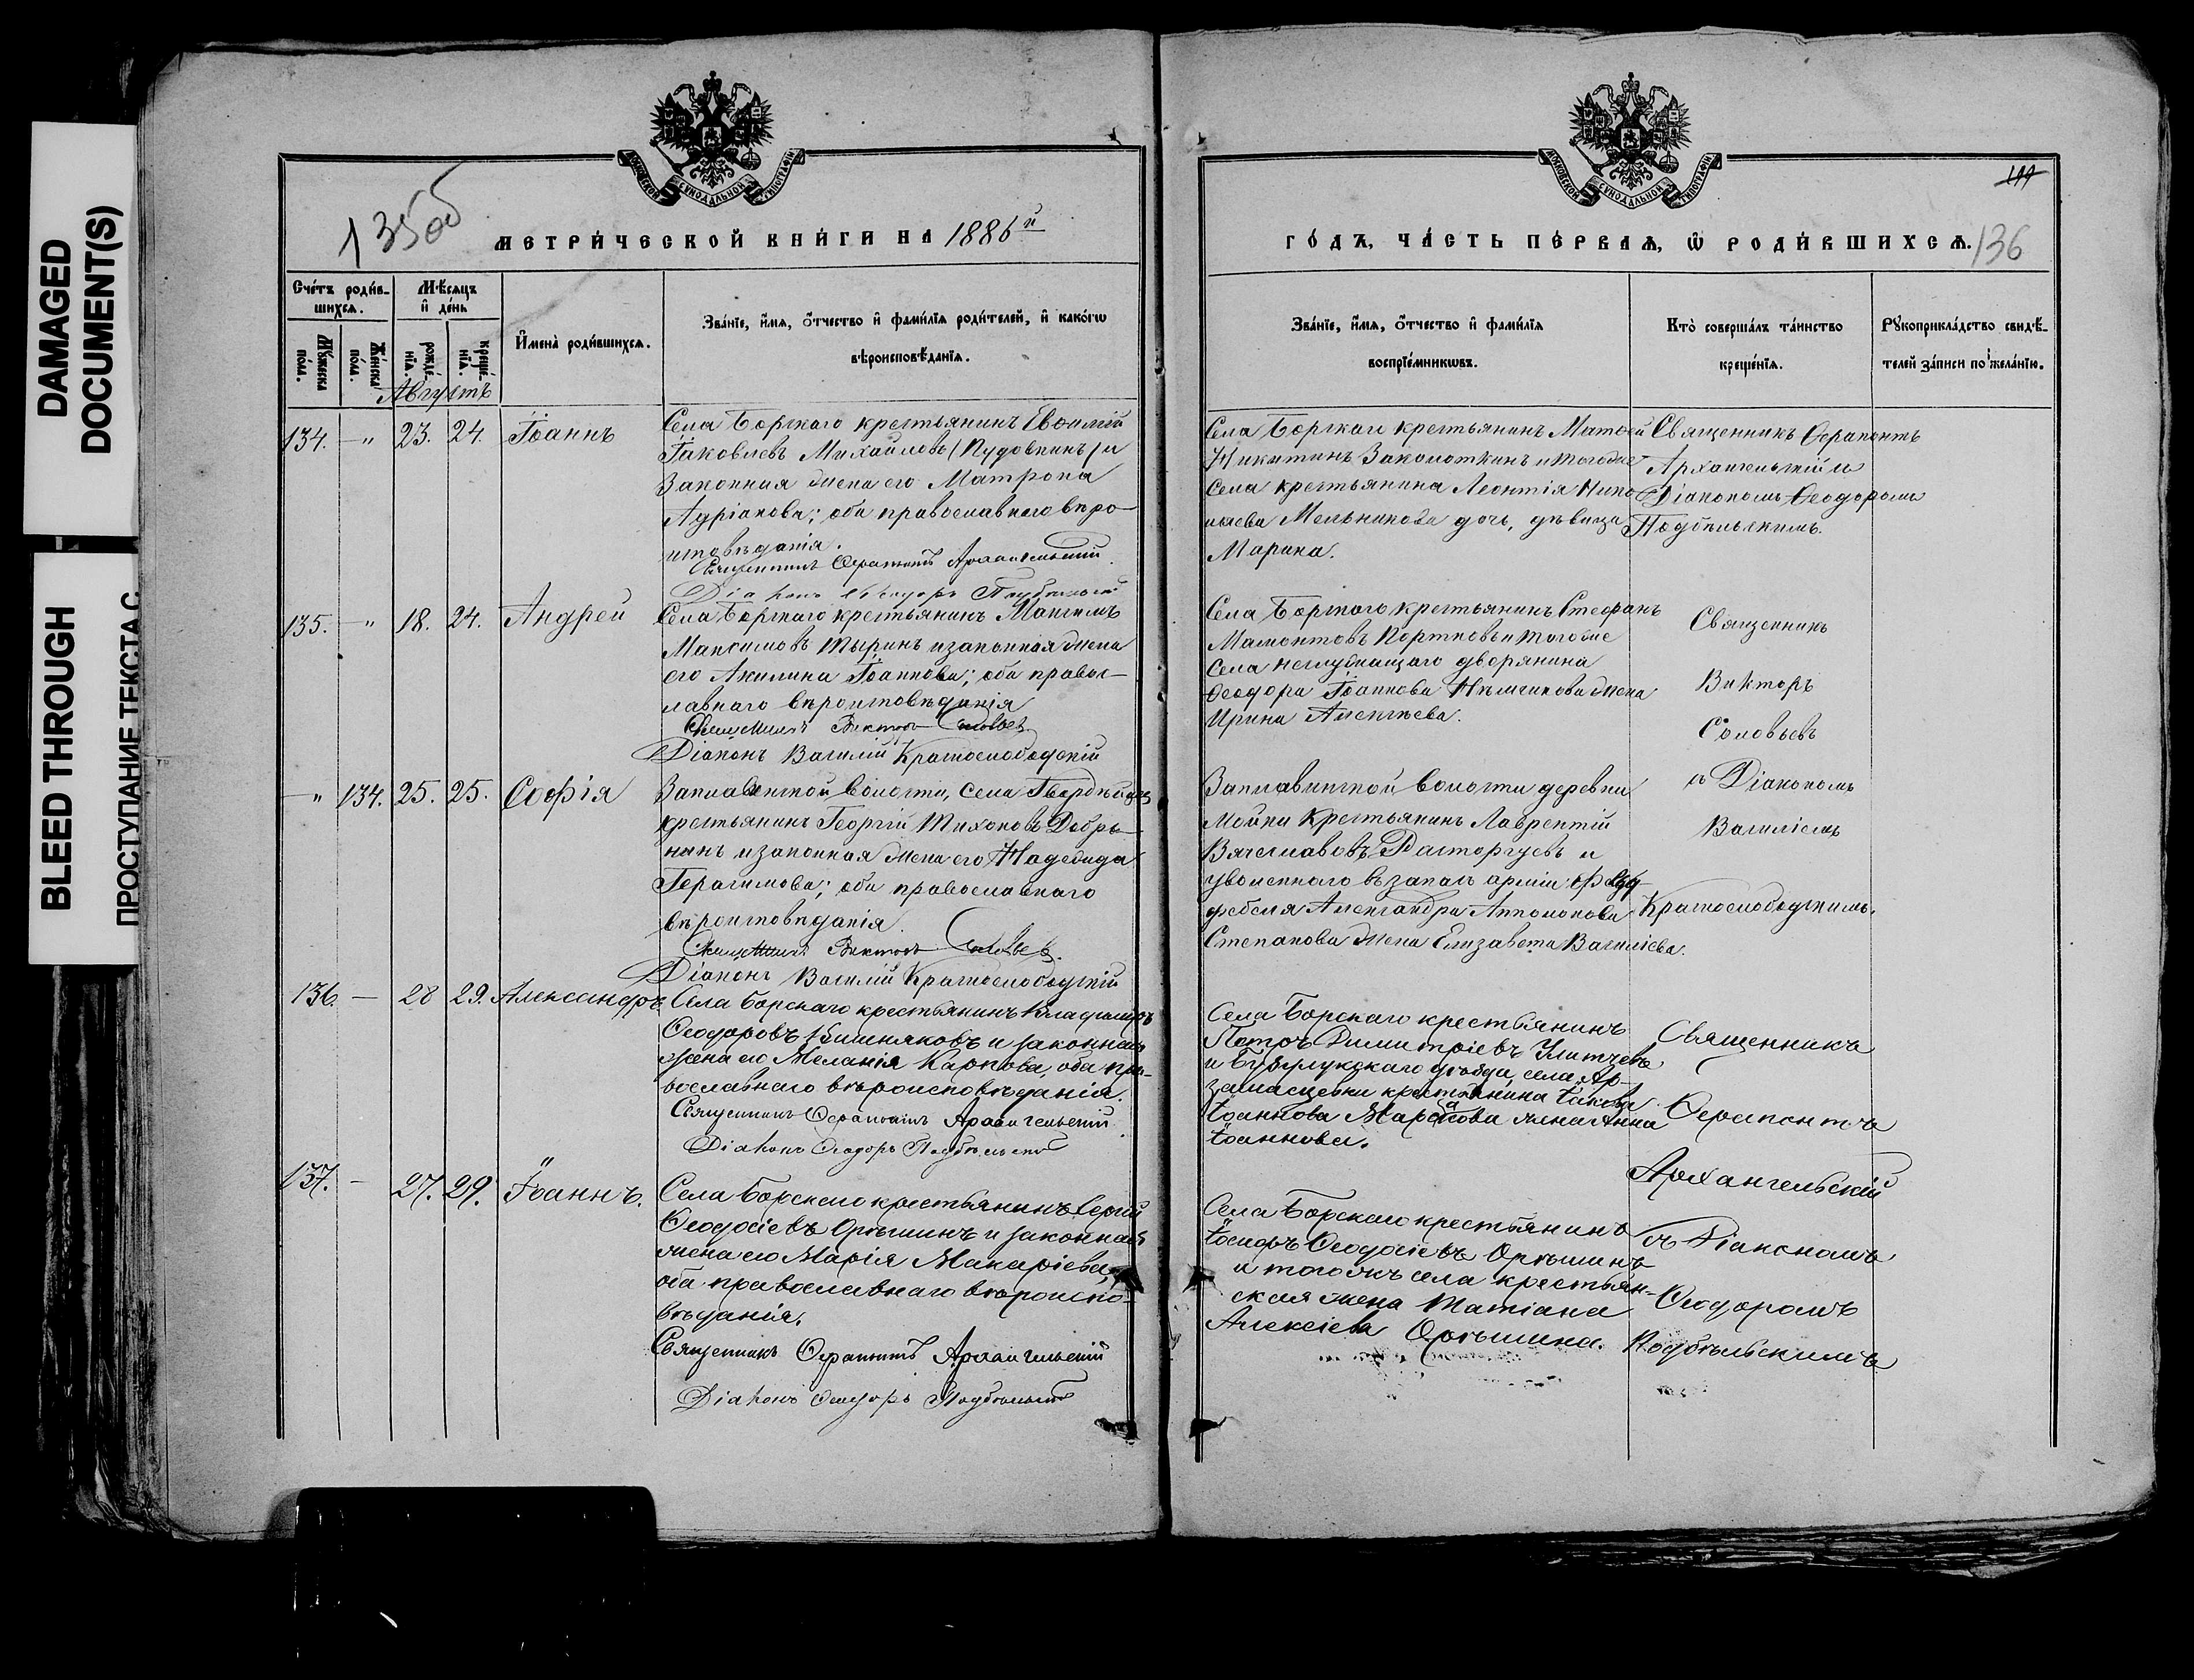 DAMAGED
DOCUMENT(S)
BLEED THROUGH
ПРОСТУПАНИЕ ТЕКСТА С
135об
МОСКОВСКОЙ СѴНОДАЛЬНОЙ ТИПОГРАФІИ
МЕТРИ́ЧЕСКОЙ КНИ́ГИ НА 1886й
Сче́тъ роди́в-
шихсѧ.
Мꙋ́жеска по́ла.
Же́нска по́ла.
Мѣ́сѧцъ
и҆ де́нь
рожде́-
нїѧ.
креще́-
нїѧ.
И҆мена̀ роди́вшихсѧ.
Зва́нїе, и҆́мѧ, ѻ҆́тчество и҆ фами́лїѧ роди́телей, и҆ како́гѡ
вѣроисповѣ́данїѧ.
Августъ
134. — " 23. 24. Іоаннъ
Села Борскаго крестьянинъ Евѳимій
Іаковлевъ Михайловъ (Пудовкинъ) и
законная жена его Матрона
Адріанова; оба православнаго вѣро-
исповѣданія.
Священникъ Ѳерапонтъ Архангельскій.
Діаконъ Ѳеодоръ Подбѣльскій
135. — " 18. 24. Андрей
Села Борскаго крестьянинъ Максимъ
Максимовъ Тыринъ и законная жена
его Акилина Іоаннова; оба правос-
лавнаго вѣроисповѣданія
Священникъ Викторъ Соловьевъ.
Діаконъ Василій Краснослободскій
— " 134. 25. 25. Софія
Заплавинской волости, села Гвардѣйцъ
крестьянинъ Георгій Тихоновъ Добры-
нинъ и законная жена его Надежда
Герасимова; оба православнаго
вѣроисповѣданія.
Священникъ Викторъ Соловьев.
Діаконъ Василій Краснослободскій
136. — 28 29. Александръ
Села Борскаго крестьянинъ Владиміръ
Ѳеодоровъ Вишняковъ и законная
жена его Меланія Карпова, оба пра-
вославнаго вѣроисповѣданія.
Священникъ Ѳерапонтъ Архангельскій.
Діаконъ Ѳеодоръ Подбѣльскій
137. — 27. 29. Іоаннъ.
Села Борскаго крестьянинъ Сергій
Ѳеодосіевъ Орѣшинъ и законная
жена его Марія Макаріева,
оба православнаго вѣроиспо-
вѣданія.
Священникъ Ѳерапонтъ Архангельскій
Діаконъ Ѳеодоръ Подбѣльскій
МОСКОВСКОЙ СѴНОДАЛЬНОЙ ТИПОГРАФІИ
ГО́ДЪ, ЧА́СТЬ ПЕ́РВАѦ, Ѡ҆ РОДИ́ВШИХСѦ. 136
Зва́нїе, и҆́мѧ, ѻ҆́тчество и҆ фами́лїѧ
воспрїе́мникѡвъ.
Кто̀ соверша́лъ та́инство
креще́нїѧ.
Рꙋкоприкла́дство свидѣ́-
телей за́писи по жела́нїю.
Села Борскаго крестьянинъ Матѳей
Никитинъ Заколоткинъ и тогоже
села крестьянина Леонтія Нико-
лаева Мельникова дочь, дѣвица
Марина.
Священникъ Ѳерапонтъ
Архангельскій и
Діакономъ Ѳеодоромъ
Подбѣльскимъ.
Села Борскаго крестьянинъ Стефанъ
Мамонтовъ Портновъ и тогоже
села неслужащаго дворянина
Ѳеодора Іоаннова жена
Ирина Алексѣева.
Священникъ
Викторъ
Соловьевъ
съ Діакономъ
Василіемъ
Краснослободскимъ.
Заплавинской волости деревни
Мойки крестьянинъ Лаврентій
Вячеславовъ Расторгуевъ и
уволеннаго въ запасъ арміи фельд-
фебеля Александра Аполонова
Степанова жена Елизавета Василіева.
Села Борскаго крестьянинъ
Петръ Димитріевъ Улитчевъ
и Бузулукскаго уѣзда, села Ар-
замасцевки крестьянина Іакова
Іоаннова жена Анна
Іоаннова.
Священникъ
Ѳерапонтъ
Архангельскій
съ Діакономъ
Ѳеодоромъ
Подбѣльскимъ
Села Борскаго крестьянинъ
Іосифъ Ѳеодосіевъ Орѣшинъ
и того жъ села крестьян-
ская жена Татіана
Алексіева Орѣшина.